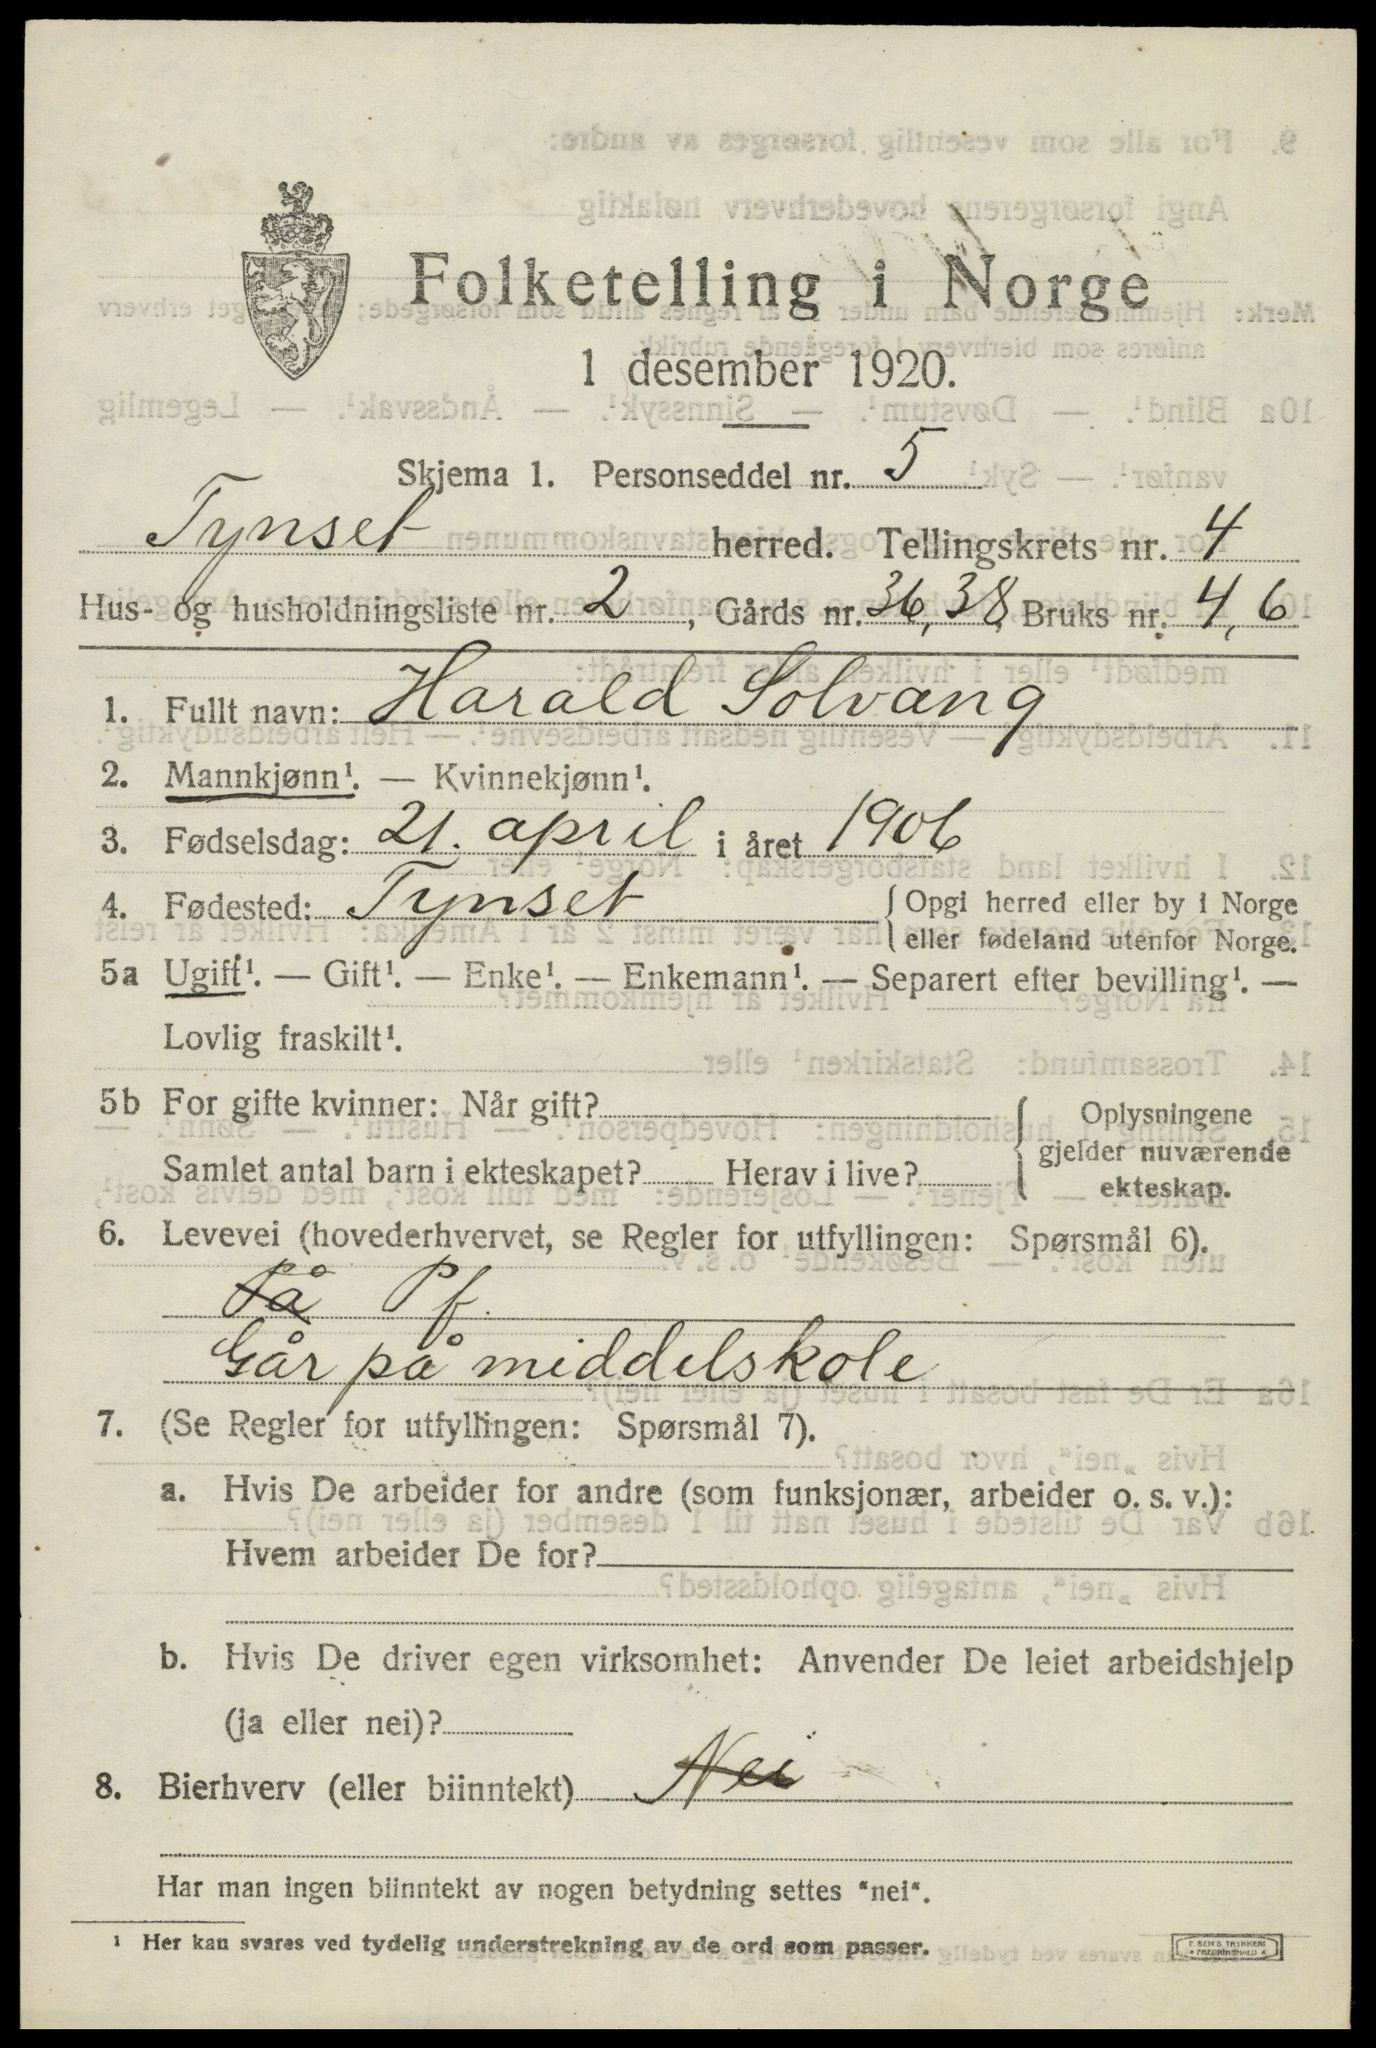 Folketelling i Norge
1 desember 1920.
Skjema 1. Personseddel nr. 5
Tynset herred. Tellingskrets nr. 4
Hus- og husholdningsliste nr. 2, Gårds nr. 36, 38, Bruks nr. 4, 6
1. Fullt navn: Harald Solvang
2. Mannkjønn¹. — Kvinnekjønn¹.
3. Fødselsdag: 21. april i året 1906
4. Fødested: Tynset { Opgi herred eller by i Norge
eller fødeland utenfor Norge.
5a Ugift¹. — Gift¹. — Enke¹. — Enkemann¹. — Separert efter bevilling¹. —
Lovlig fraskilt¹.
5b For gifte kvinner: Når gift? { Oplysningene
gjelder nuværende
Samlet antal barn i ekteskapet? Herav i live? ekteskap.
6. Levevei (hovederhvervet, se Regler for utfyllingen: Spørsmål 6).
På Pf.
Går på middelskole
7. (Se Regler for utfyllingen: Spørsmål 7).
a. Hvis De arbeider for andre (som funksjonær, arbeider o. s. v.):
Hvem arbeider De for?
b. Hvis De driver egen virksomhet: Anvender De leiet arbeidshjelp
(ja eller nei)?
8. Bierhverv (eller biinntekt) Nei
Har man ingen biinntekt av nogen betydning settes "nei".
¹ Her kan svares ved tydelig understrekning av de ord som passer.
E. SEM'S TRYKKERI
FREDRIKSHALD